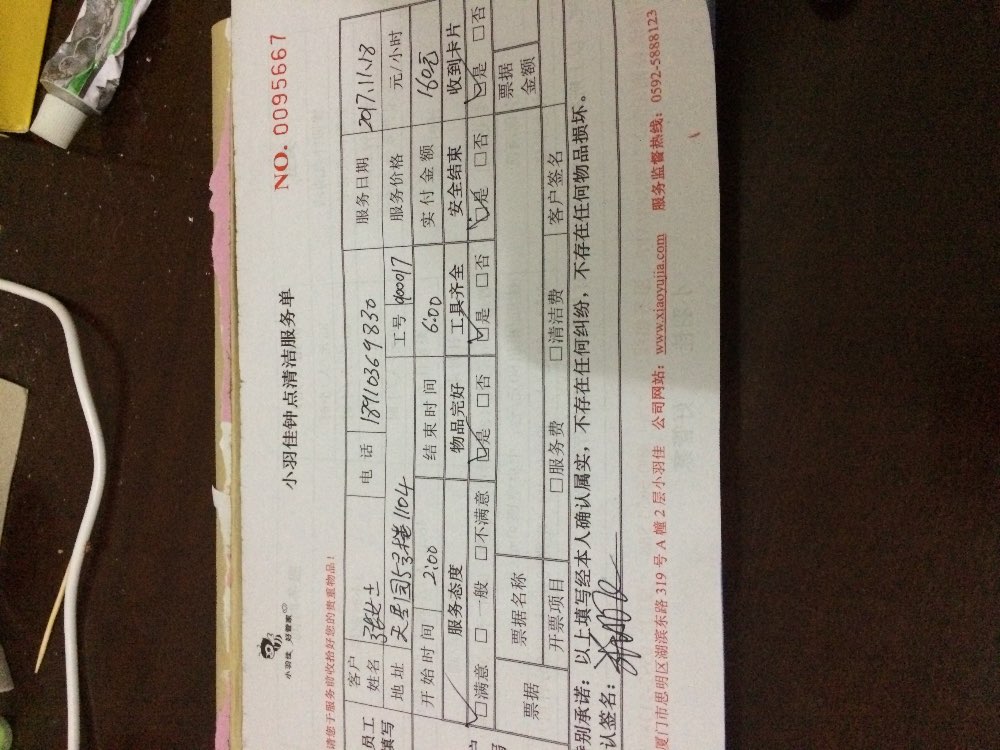 小羽佳 好管家
小羽佳钟点清洁服务单
NO. 0095667
请您于服务前收拾好您的贵重物品!
员工
填写
客户
姓名
女士
电 话
18910369830
服务日期
2017.11.18
地 址
天星园5号楼1104
工号
900017
服务价格
元/小时
开 始 时 间
2:00
结 束 时 间
6:00
实 付 金 额
160元
服务态度
物品完好
工具齐全
安全结束
收到卡片
☑满意 □ 一般 □不满意
☑是 □否
☑是 □否
☑是 □否
☑是 □否
票据
票据名称
票据
金额
开票项目
□服务费
□清洁费
客户签名
别承诺：以上填写经本人确认属实，不存在任何纠纷，不存在任何物品损坏。
认签名：
厦门市思明区湖滨东路 319 号 A 幢 2 层小羽佳 公司网站：www.xiaoyujia.com 服务监督热线：0592-5888123